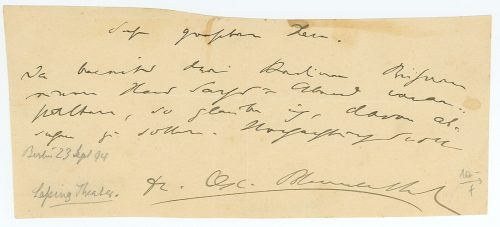 Sehr geehrter Herr.
Da bereits drei Berliner Bühnen
einen Hans Sachs-Abend veran-
stalten, so glaube ich, davon ab-
sehen zu sollen. Hochachtungsvoll
Berlin 23 Sept 94
Dr. Osc. Blumenthal
Leßing Theater.